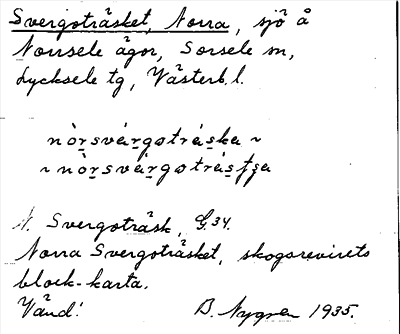 Svergoträsket, Norra, sjö å
Norrsele ägor, Sorsele sn,
Lycksele tg, Västerb. l.
nòrsvárgotráska ~
~ nòrsvárgotrásʄʒa
N. Svergoträsk, G.34.
Norra Svergoträsket, skogsrevirets
block-karta.
Vänd! B. Nygren 1935.